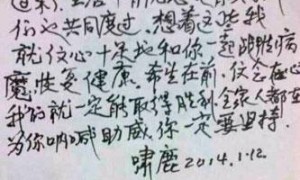 们也共同度过。想着这些我
就信心十足地和你一起战胜病
魔,恢复健康。希望在前,信念在心
我们就一定能取得胜利。全家人都在
为你呐喊助威,你一定要坚持。
啸鹿2014.1.12.